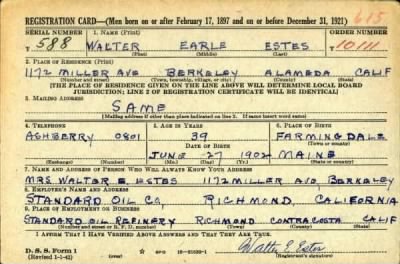 REGISTRATION CARD—(Men born on or after February 17, 1897 and on or before December 31, 1921) 615
SERIAL NUMBER 1. NAME (Print) ORDER NUMBER
T 588 WALTER EARLE ESTES T 10111
(First) (Middle) (Last)
2. PLACE OF RESIDENCE (Print)
1172 MILLER AVE BERKELEY ALAMEDA CALIF
(Number and street) (Town, township, village, or city) (County) (State)
[THE PLACE OF RESIDENCE GIVEN ON THE LINE ABOVE WILL DETERMINE LOCAL BOARD
JURISDICTION; LINE 2 OF REGISTRATION CERTIFICATE WILL BE IDENTICAL]
3. MAILING ADDRESS
SAME
[Mailing address if other than place indicated on line 2. If same insert word same]
4. TELEPHONE 5. AGE IN YEARS 6. PLACE OF BIRTH
ASHBERRY 0801 39 FARMINGDALE
DATE OF BIRTH (Town or county)
JUNE 27 1902 MAINE
(Exchange) (Number) (Mo.) (Day) (Yr.) (State or country)
7. NAME AND ADDRESS OF PERSON WHO WILL ALWAYS KNOW YOUR ADDRESS
MRS. WALTER E. ESTES 1172 MILLER AVE, BERKELEY
8. EMPLOYER'S NAME AND ADDRESS
STANDARD OIL CO, RICHMOND, CALIFORNIA
9. PLACE OF EMPLOYMENT OR BUSINESS
STANDARD OIL REFINERY RICHMOND CONTRA COSTA CALIF
(Number and street or R. F. D. number) (Town) (County) (State)
I AFFIRM THAT I HAVE VERIFIED ABOVE ANSWERS AND THAT THEY ARE TRUE.
D. S. S. Form 1 Walter E Estes
(Revised 1-1-42) (Registrant's signature)